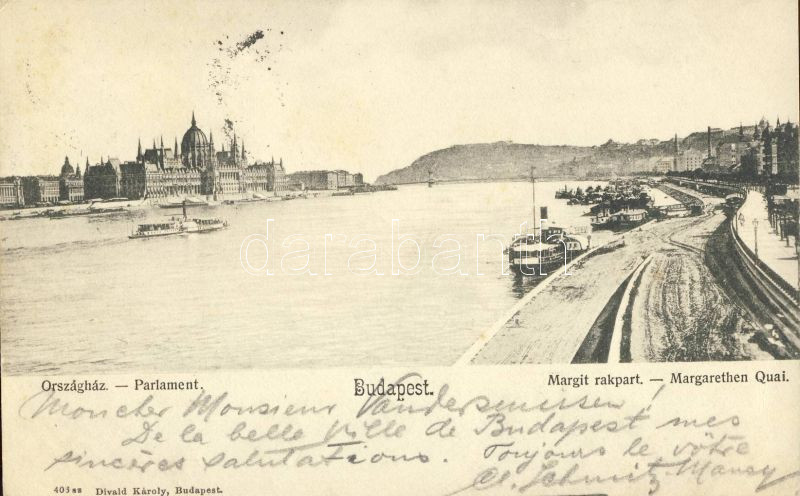 darabanth
Országház. — Parlament.
Budapest.
Margit rakpart. — Margarethen Quai.
Moncher Monsieur
De la belle Ville de Budapest mes
sincères salutations. Toujours le vôtre
403 88 Divald Károly, Budapest.